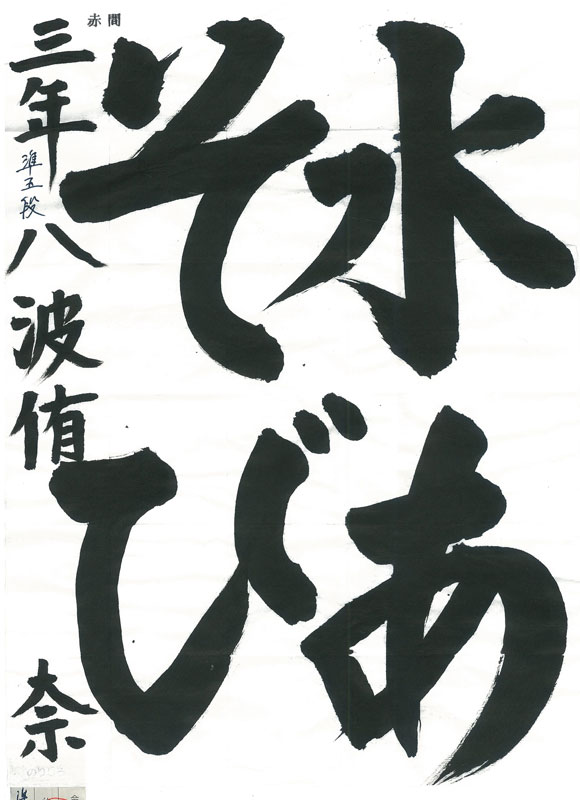 水あ
そび
赤間
三年 準五段 八波侑奈